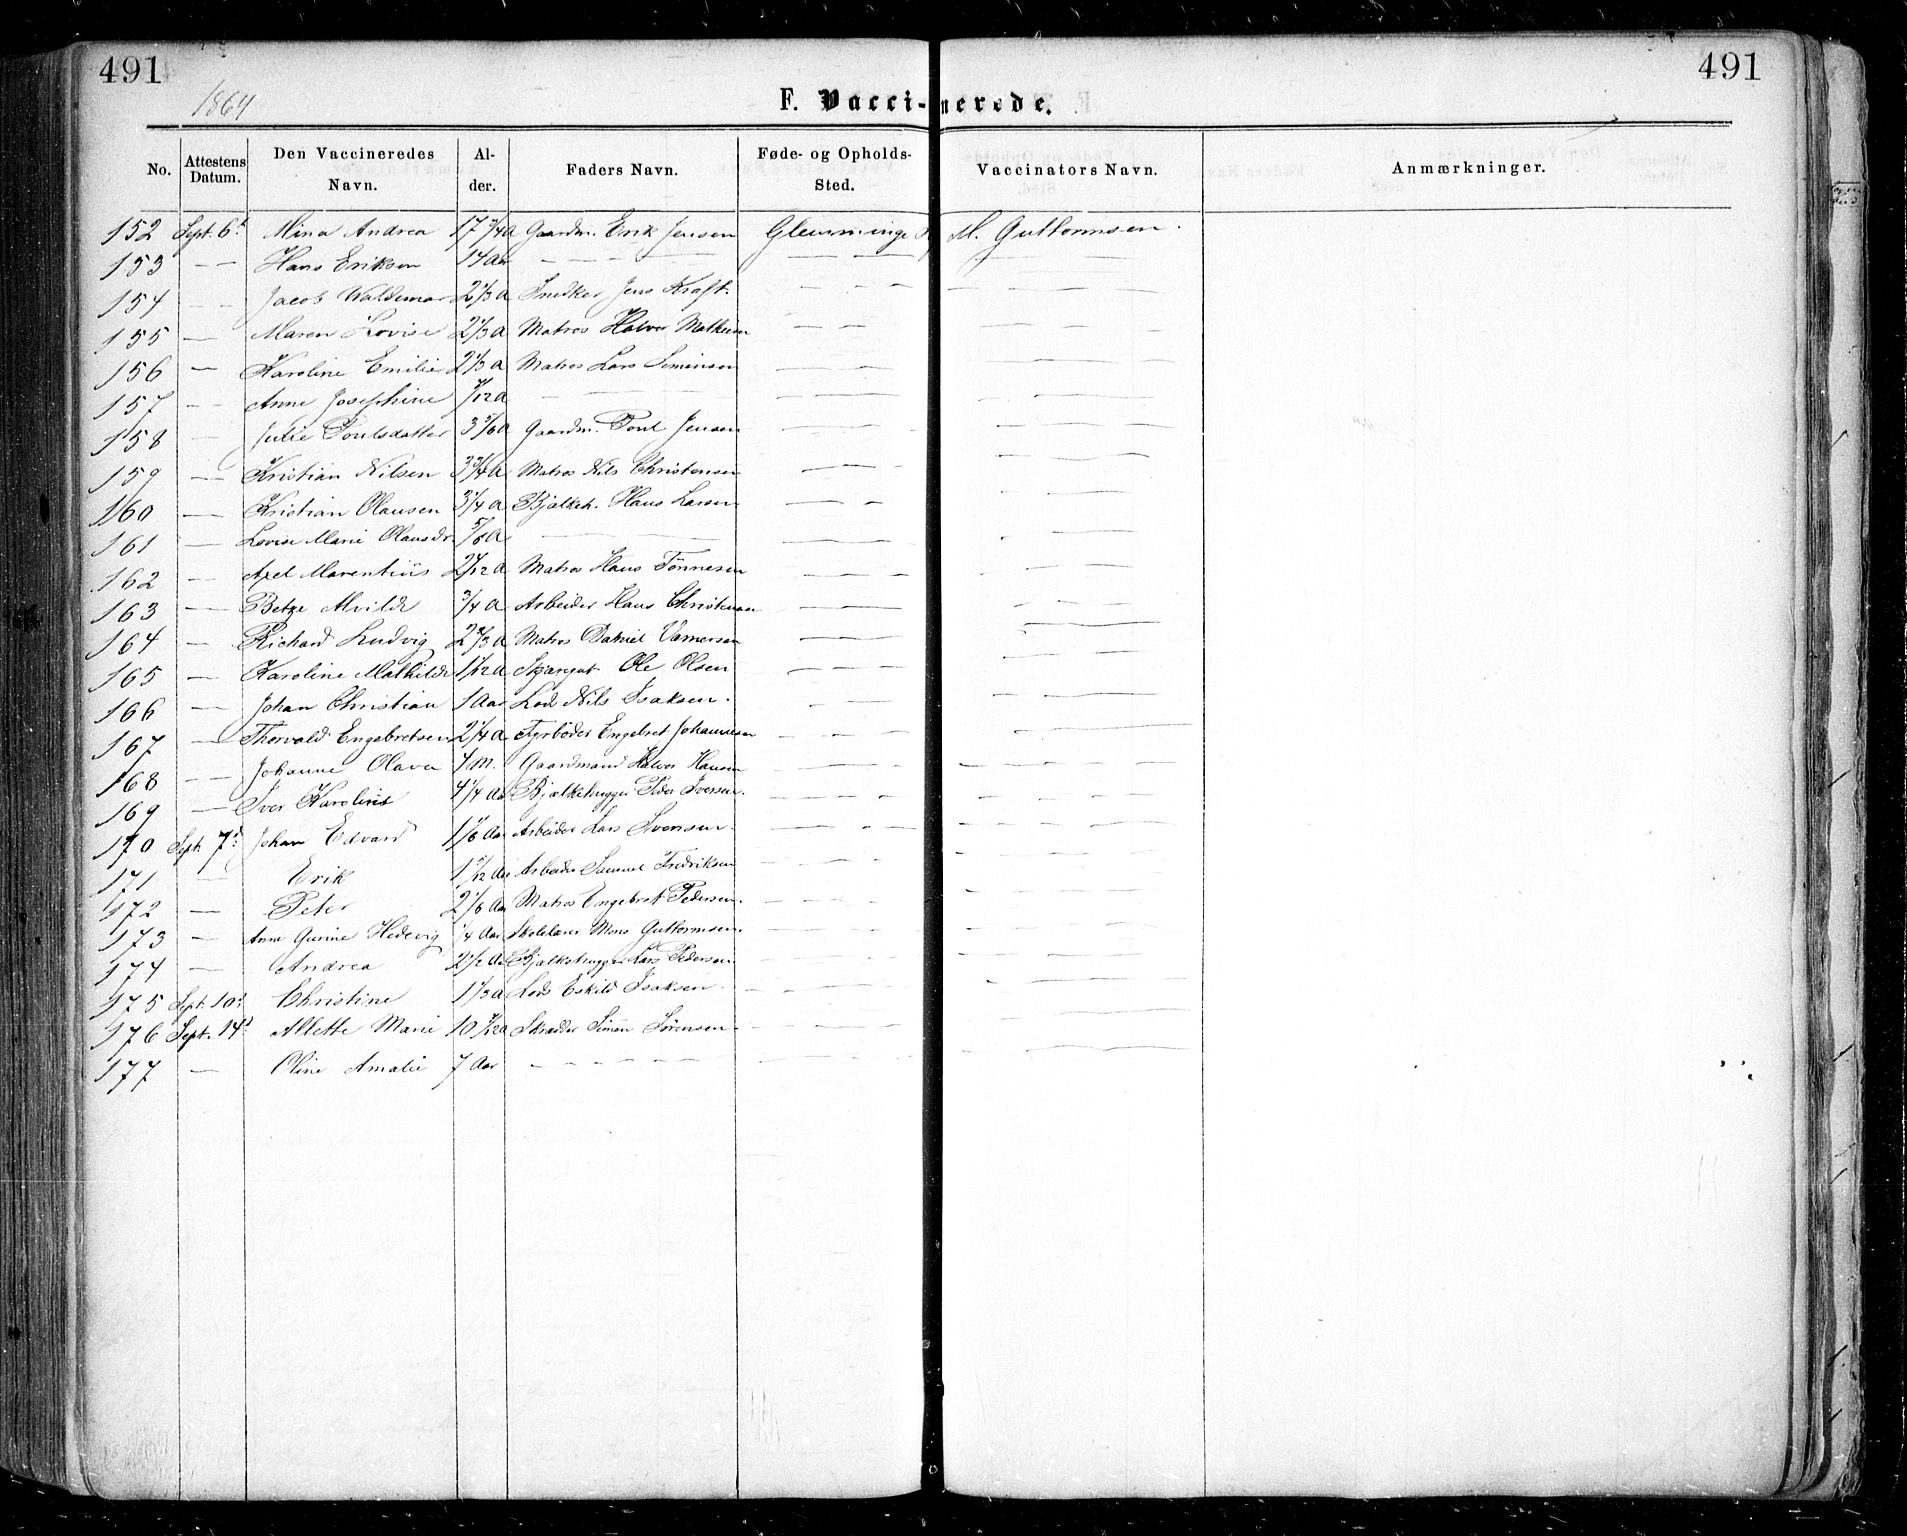 491
491
1864
F. Vacci-nerede.
No. Attestens Datum. Den Vaccineredes Navn. Al-der. Faders Navn. Føde- og Opholds-Sted. Vaccinators Navn. Anmærkninger.
152 Sept. 6t Mina Andrea 17 Gaardm. Erik Jensen Glemminge M. Guttormsen.
153 — — Hans Eriksen 14 Aar — — — — — — — — —
154 — — Jacob Waldemar 2 1/3 A Snedker Jens Kraft. — — — — — —
155 — Maren Lovise 2 1/3 A Matros Halvor — — — — —
156 — Karoline Emilie 2 1/3 A Matros Lars Simensen — — — — —
157 — — Anne Josephine /12 A — — — — — — —
158 — Julie Poulsdatter 3 5/6 A Gaardm. Poul Jensen — — — — —
159 — Kristian Nilsen 3 3/4 A Matros Nils Christensen — — — — —
160 — Kristian Olausen 3 1/4 A Bjælkeh. Hans Larsen — — — — —
161 — Lovise Marie Olausdr. 5/6 A — — — — — — —
162 — Axel Marentius 2 /12 A Matros Hans Tønnesen — — — — —
163 — Betze Alvilde 3/4 A Arbeider Hans Christensen — — — — —
164 — Richard Ludvig 2 2/3 A Matros Daniel — — — —
165 — Karoline Mathilde 1 /12 A Ole Olsen — — — — —
166 — Johan Christian 1 Aar Lods Nils Isaksen. — — — — —
167 — Thorvald Engebretsen 2 1/4 A Fyrbøder Engebret Johannesen — — — — —
168 — — Johanne Olava 4 M. Gaardmand Halvor Hansen — — — — — —
169 — Iver Karolius 4 1/4 Aar Bjælkehugger Peder Iversen. — — — — — —
170 Sept. 7d: Johan Edvard 1 1/6 Aar Arbeider Lars Svensen. — — — — — —
171 — Erik 1 /12 Aar Arbeider Samuel Fredriksen — — — — — —
172 — Peter 2 1/6 Aar Matros Engebret Pedersen. — — — — — —
173 — Anne Gurine Hedevig 1/4 Aar Skolelærer Mons Guttormsen. — — — — — —
174 — Andrea 2 1/2 Aar Bjælkehugger Lars Pedersen. — — — — —
175 Sept. 10d: Christine 1 1/3 A Lods Eskild Isaksen. — — — — — —
176 Sept. 14d Allette Marie 10 /12 A Skrædder Simen Sørensen. — — — — —
177 — Oline Amalie 7 Aar — — — — — — — — — — —